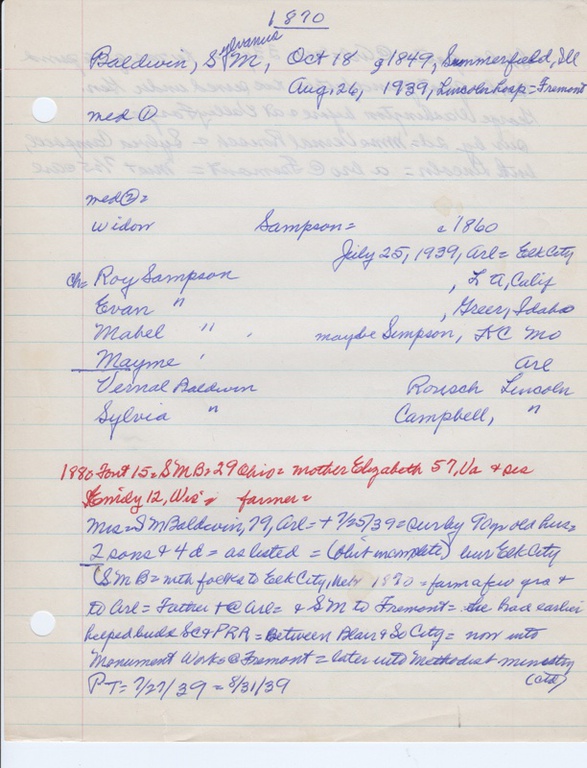 1870
Baldwin, Sylvanus M, Oct 18 1849, Summerfield, Ill
Aug, 26, 1939, Lincoln hosp = Fremont
med ①
med ② =
widow Sampson = c 1860
July 25, 1939, Arl = Elk City
ch = Roy Sampson , L A, Calif
Evan " , Greer, Idaho
Mabel " , maybe Simpson, KC Mo
Mayme ' Arl
Vernal Baldwin Rousch Lincoln
Sylvia " Campbell, "
1880 Font 15 = SMB = 29 Ohio = mother Elizabeth 57, Va & sis
Emidy 12, Wis = farmer =
Mrs = SM Baldwin, 79, Arl = + 7/25/39 = sur by 90 yr old hus =
2 sons & 4 d = as listed = (obit incomplete) bur Elk City
(SMB = with folks to Elk City, Neb 1870 = farm a few yrs &
to Arl = Father + @ Arl = & SM to Fremont = he had earlier
helped build SC & P RR = Between Blair & So City = now into
Monument Works @ Fremont = later into Methodist ministry
PT = 7/27/39 = 8/31/39 (ctd)